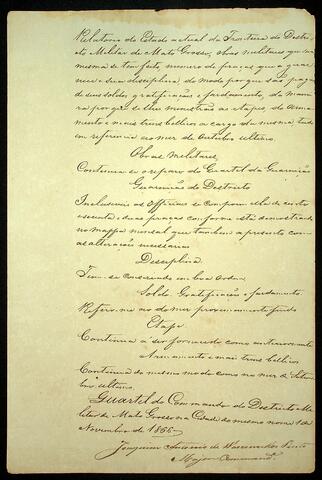 Relatorio do Estado actual da Fronteira do Destri-
cto Militar de Mato Grosso, obras militares que na
mesma se tem feito, numero de praças que a guar-
nece e sua disciplina do modo porque são pagas
de seus soldos, gratificações e fardamento, da manei-
ra porque se lhes ministrão as etapes, do arma-
mento e mais trens bellicos a cargo da mesma, tudo
em referencia ao mez de Outubro ultimo.
Obras Militares
Continua se o reparo do Quartel da Guarnição
Guarnição do Districto
Inclusiveis os Officiaes se compoem ella de cento
e secenta e duas praças conforme está demonstrado
no mappa mensal que tambem apresento com
as alterações necessarias
Desciplina
Tem se conservado em boa ordem
Soldo, Gratificação e fardamento
Refiro me ao do mez proximamente findo
Etape
Continua a ser fornecido como anteriormente
Armamento e mais trens bellicos
Continua do mesmo modo como no mez de Setem-
bro ultimo.
Quartel do Commando do Destricto Mi-
litar de Mato Grosso na Cidade do mesmo nome 1 de
Novembro de 1866
Joaquim Antonio de
Major Command.